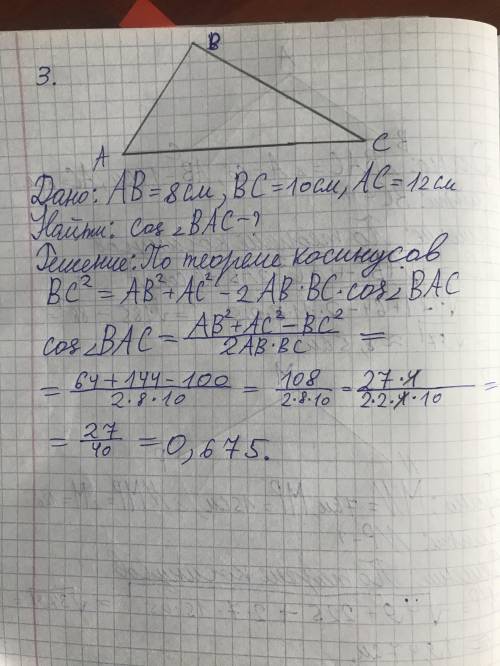 3.
B
A
C
Дано: AB = 8см, BC = 10см, AC = 12см
Найти: cos∠BAC - ?
Решение: По теореме косинусов
BC² = AB² + AC² - 2AB·BC·cos∠BAC
cos∠BAC = (AB² + AC² - BC²)/(2AB·BC) =
= (64 + 144 - 100)/(2·8·10) = 108/(2·8·10) = (27·4)/(2·2·4·10) =
= 27/40 = 0,675.